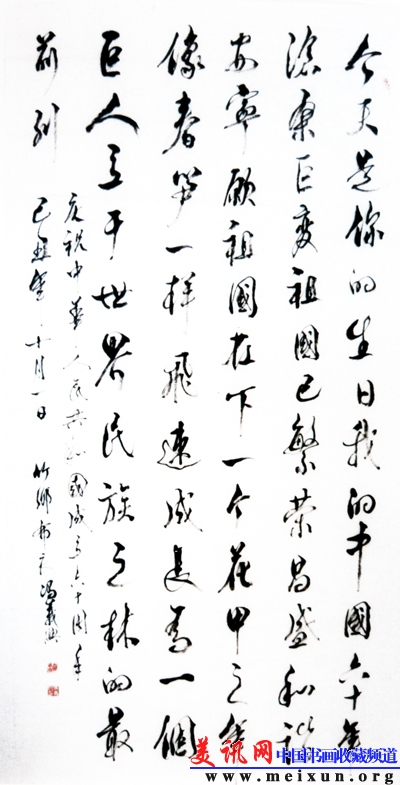 今天是你的生日我的中国六十年
沧桑巨变祖國已繁荣昌盛和谐
安寧願祖國在下一个花甲之年
像春笋一样飛速成長為一個
巨人立于世界民族之林的最
前列
庆祝中华人民共和國成立六十周年
己丑年十月一日 竹鄉布衣
美讯网 中国书画收藏频道
www.meixun.org